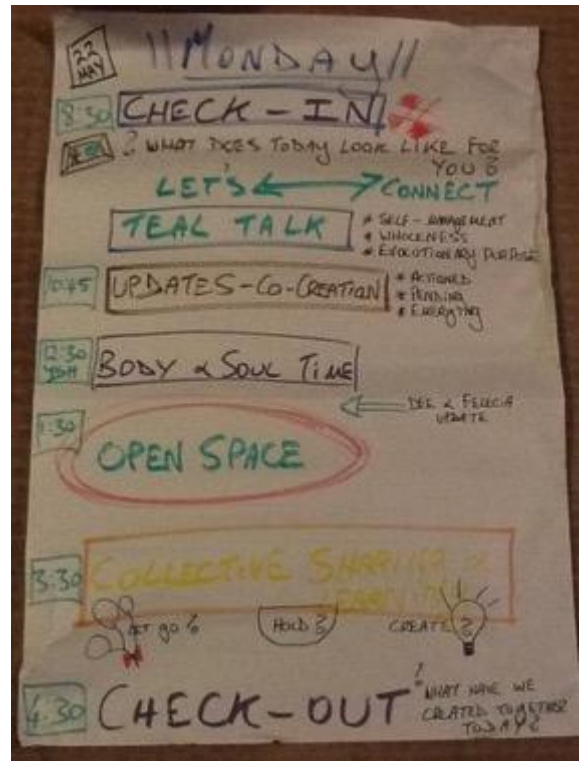 22 MAY
|| MONDAY ||
8:30 CHECK-IN
? WHAT DOES TODAY LOOK LIKE FOR YOU?
LET'S CONNECT
TEAL TALK
* SELF-MANAGEMENT
* WHOLENESS
* EVOLUTIONARY PURPOSE
10:45 UPDATES-CO-CREATION
* ACTIONED
* PENDING
* EVERYTHING
12:30 BODY & SOUL TIME
DEE & FELICIA UPDATE
1:30 OPEN SPACE
3:30 COLLECTIVE SHARING & LEARNING
LET GO?
HOLD?
CREATE?
4.30 CHECK-OUT
! WHAT HAVE WE
CREATED TOGETHER
TODAY?